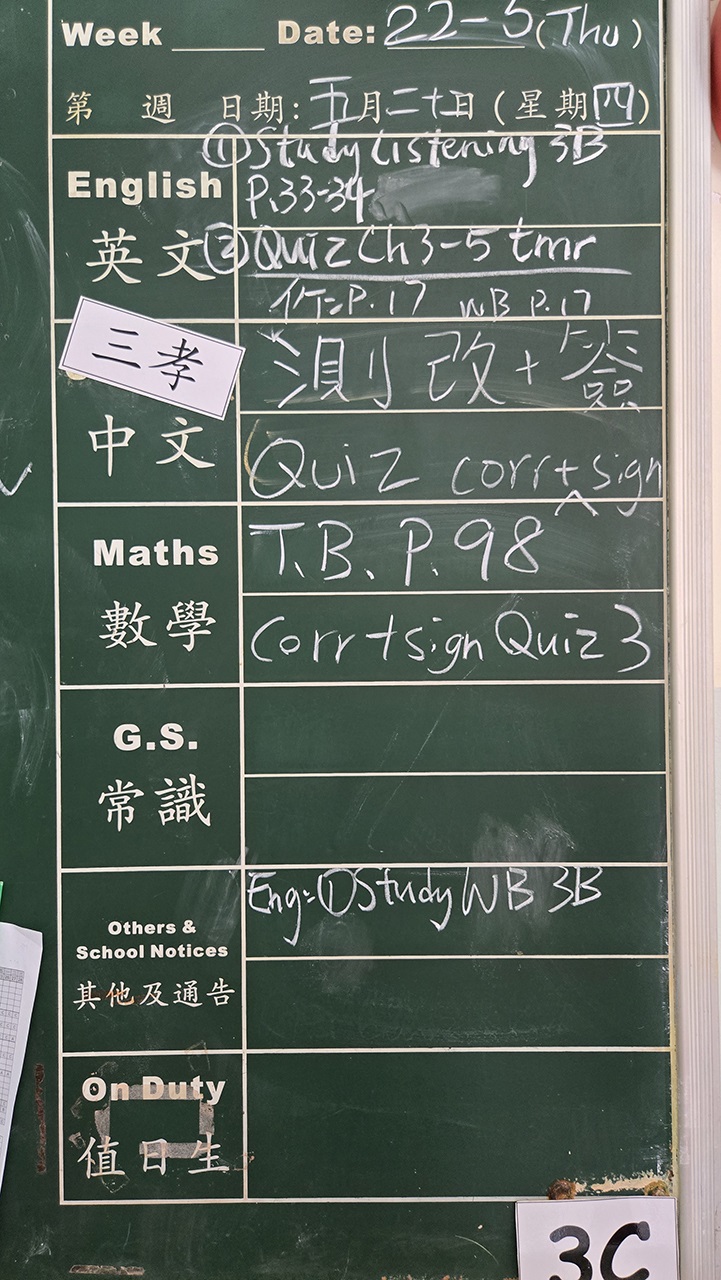 Week ____ Date: 22-5 (Thu)
第 週 日期: 五月二十二日 (星期四)
English
英文
① Study Listening 3B
P.33-34
② Quiz Ch 3-5 tmr
P.17 WB P.17
三孝
中文
測改+簽
Quiz corr + sign
Maths
數學
T.B. P.98
Corr + sign Quiz 3
G.S.
常識
Others &
School Notices
其他及通告
Eng: ① Study WB 3B
On Duty
值日生
3C